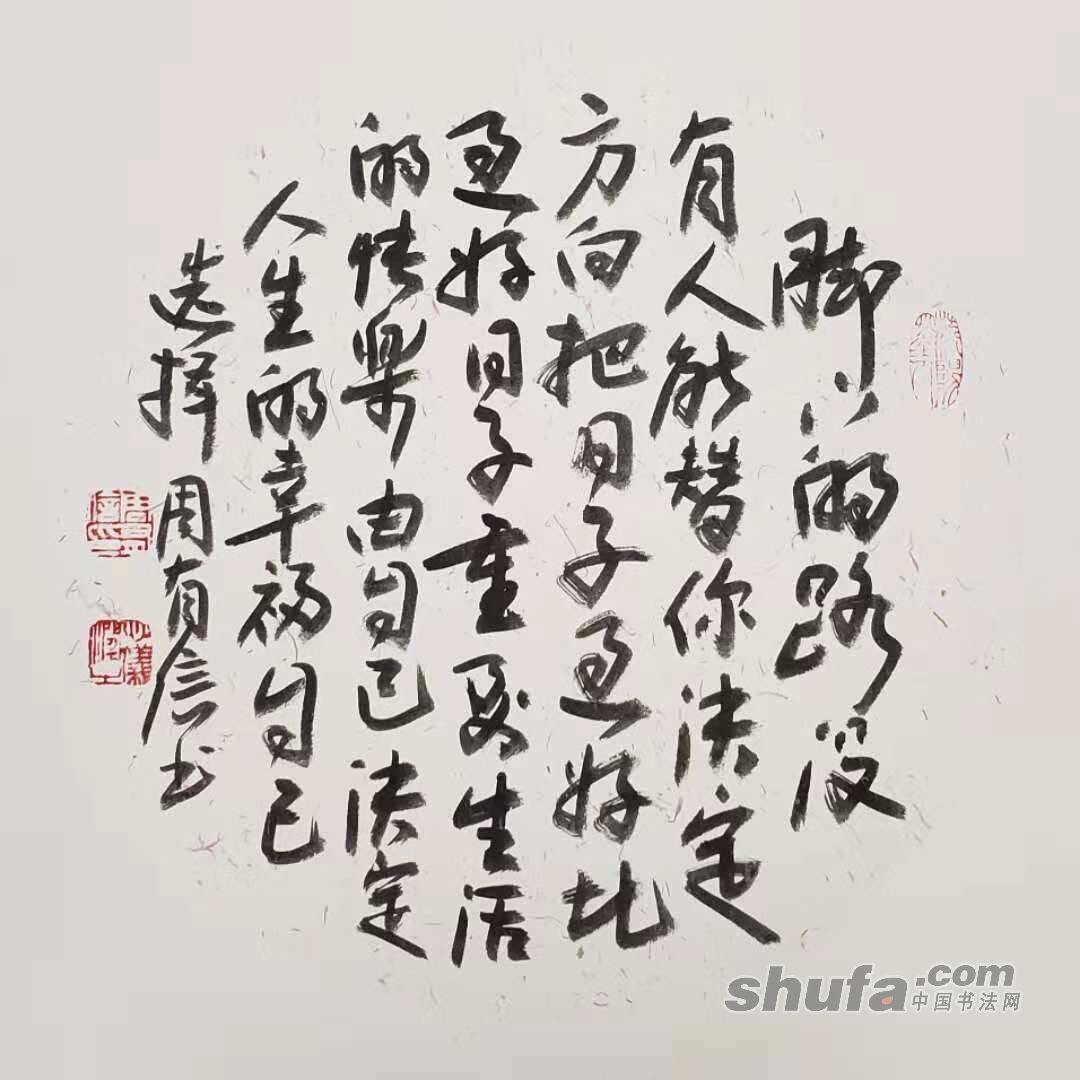 脚下的路没
有人能替你决定
方向把日子过好比
过好日子重要生活
的快樂由自己决定
人生的幸福自己
选择周有信书
shufa.com
中国书法网